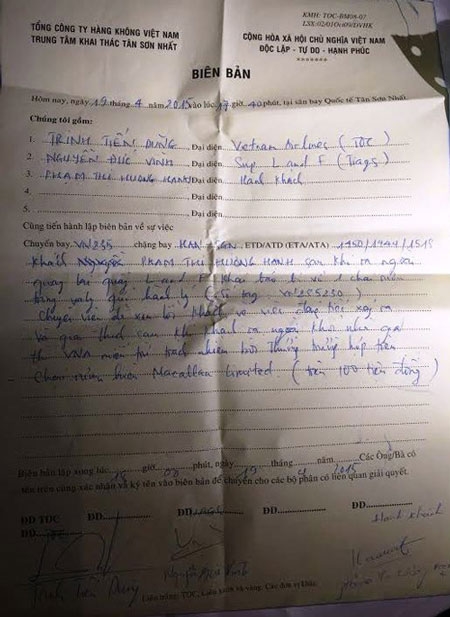 KMH: TOC-BM08-07
LSX: 02/01Oct09/DVHK
TỔNG CÔNG TY HÀNG KHÔNG VIỆT NAM
TRUNG TÂM KHAI THÁC TÂN SƠN NHẤT
CỘNG HÒA XÃ HỘI CHỦ NGHĨA VIỆT NAM
ĐỘC LẬP - TỰ DO - HẠNH PHÚC
BIÊN BẢN
Hôm nay, ngày 19 tháng 4 năm 2015 vào lúc 17 giờ 40 phút, tại sân bay Quốc tế Tân Sơn Nhất.
Chúng tôi gồm:
1. TRỊNH TIẾN DŨNG Đại diện Vietnam Airlines (TOC)
2. NGUYỄN ĐỨC VINH Đại diện Sup. L and F (Tiags)
3. PHẠM THỊ HƯƠNG HẠNH Đại diện Hành khách
4. Đại diện
5. Đại diện
Cùng tiến hành lập biên bản về sự việc
Chuyến bay VN235 chặng bay HAN - SGN ETD/ATD (ETA/ATA) 1750/1944/1515
Khách PHẠM THỊ HƯƠNG HẠNH sau khi ra
quay lại quầy L and F khai báo bị vỡ 1 chai rượu
trong valy gửi hành lý (số tag VN285230)
Chuyên viên đã xin lỗi khách về việc đáng tiếc xảy ra
và
thì VNA miễn trừ trách nhiệm bồi thường trường hợp trên
Chai rượu Macallan Limited (trên 100 tiền đồng)
Biên bản lập xong lúc giờ phút, ngày 19 tháng 4 năm 2015 Các Ông/Bà có
tên trên cùng xác nhận và ký tên vào biên bản để chuyển cho các bộ phận có liên quan giải quyết.
ĐD TOC ĐD ĐD ĐD
ĐD Hành khách
Trịnh Tiến Dũng
Liên trắng: TOC, Liên xanh và vàng: Các đơn vị khác.